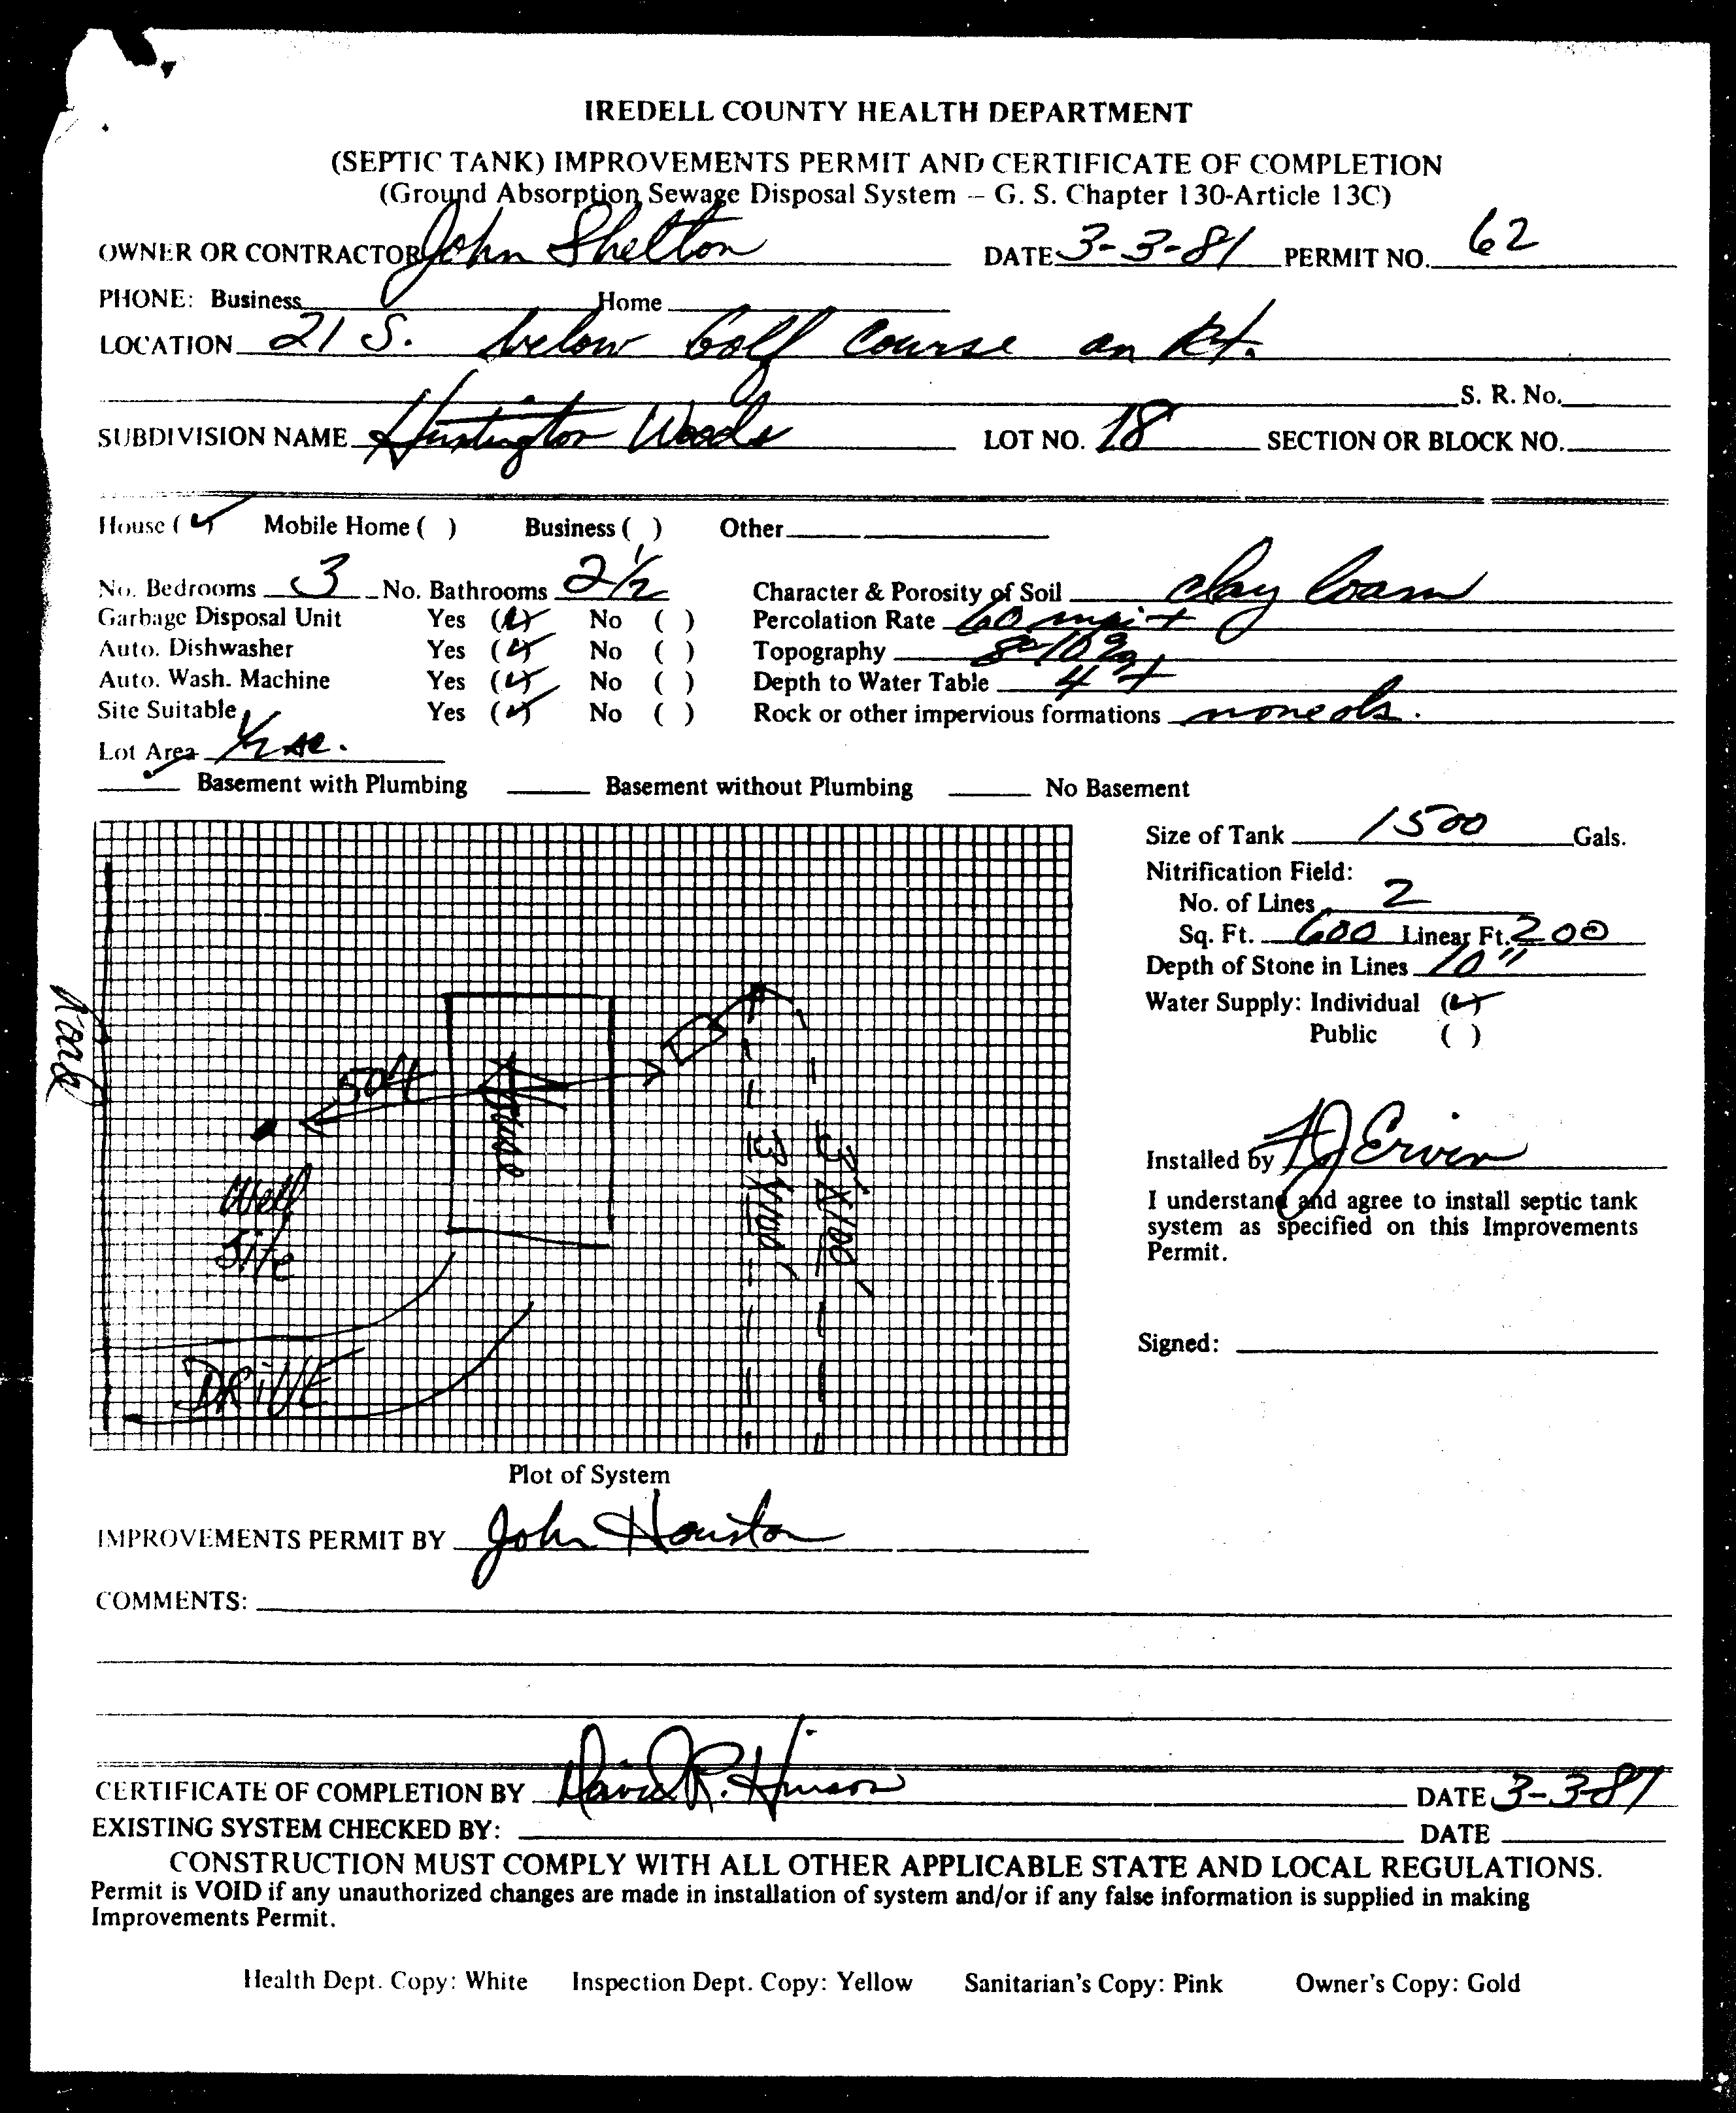 IREDELL COUNTY HEALTH DEPARTMENT
(SEPTIC TANK) IMPROVEMENTS PERMIT AND CERTIFICATE OF COMPLETION
(Ground Absorption Sewage Disposal System -- G. S. Chapter 130-Article 13C)
OWNER OR CONTRACTOR John Shelton DATE 3-3-81 PERMIT NO. 62
PHONE: Business Home
LOCATION 21 S. below Golf Course on Rt.
S. R. No.
SUBDIVISION NAME Huntington Woods LOT NO. 18 SECTION OR BLOCK NO.
House (✓) Mobile Home ( ) Business ( ) Other
No. Bedrooms 3 No. Bathrooms 2 1/2 Character & Porosity of Soil clay loam
Garbage Disposal Unit Yes (✓) No ( ) Percolation Rate 60 mpi +
Auto. Dishwasher Yes (✓) No ( ) Topography 8-10%
Auto. Wash. Machine Yes (✓) No ( ) Depth to Water Table 4'+
Site Suitable Yes (✓) No ( ) Rock or other impervious formations none obs.
Lot Area 1/2 ac.
✓ Basement with Plumbing Basement without Plumbing No Basement
Size of Tank 1500 Gals.
Nitrification Field:
No. of Lines 2
Sq. Ft. 600 Linear Ft. 200
Depth of Stone in Lines 10"
Water Supply: Individual (✓)
Public ( )
Road
50+
House
3'X100'
3'X100'
Well
Site
DRIVE
Installed by Ervin
I understand and agree to install septic tank
system as specified on this Improvements
Permit.
Signed:
Plot of System
IMPROVEMENTS PERMIT BY John Houston
COMMENTS:
CERTIFICATE OF COMPLETION BY David R. Hinson DATE 3-3-81
EXISTING SYSTEM CHECKED BY: DATE
CONSTRUCTION MUST COMPLY WITH ALL OTHER APPLICABLE STATE AND LOCAL REGULATIONS.
Permit is VOID if any unauthorized changes are made in installation of system and/or if any false information is supplied in making
Improvements Permit.
Health Dept. Copy: White Inspection Dept. Copy: Yellow Sanitarian's Copy: Pink Owner's Copy: Gold